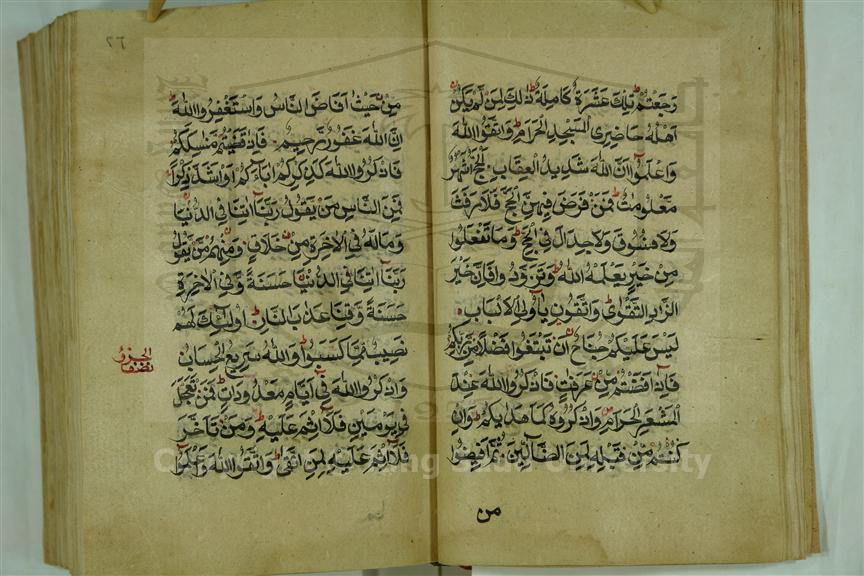 رَجَعْتُمْ تِلْكَ عَشَرَةٌ كَامِلَةٌ ذٰلِكَ لِمَنْ لَمْ يَكُنْ
اَهْلُهُ حَاضِرِى الْمَسْجِدِ الْحَرَامِ وَاتَّقُوا اللّٰهَ
وَاعْلَمُوٓا اَنَّ اللّٰهَ شَدِيدُ الْعِقَابِ اَلْحَجُّ اَشْهُرٌ
مَعْلُومَاتٌ فَمَنْ فَرَضَ فِيهِنَّ الْحَجَّ فَلَا رَفَثَ
وَلَا فُسُوقَ وَلَا جِدَالَ فِى الْحَجِّ وَمَا تَفْعَلُوا
مِنْ خَيْرٍ يَعْلَمْهُ اللّٰهُ وَتَزَوَّدُوا فَاِنَّ خَيْرَ
الزَّادِ التَّقْوٰى وَاتَّقُونِ يَآ اُولِى الْاَلْبَابِ
لَيْسَ عَلَيْكُمْ جُنَاحٌ اَنْ تَبْتَغُوا فَضْلًا مِنْ رَبِّكُمْ
فَاِذَآ اَفَضْتُمْ مِنْ عَرَفَاتٍ فَاذْكُرُوا اللّٰهَ عِنْدَ
الْمَشْعَرِ الْحَرَامِ وَاذْكُرُوهُ كَمَا هَدٰيكُمْ وَاِنْ
كُنْتُمْ مِنْ قَبْلِهِ لَمِنَ الضَّآلِّينَ ثُمَّ اَفِيضُوا
من
٦٦
مِنْ حَيْثُ اَفَاضَ النَّاسُ وَاسْتَغْفِرُوا اللّٰهَ
اِنَّ اللّٰهَ غَفُورٌ رَحِيمٌ فَاِذَا قَضَيْتُمْ مَنَاسِكَكُمْ
فَاذْكُرُوا اللّٰهَ كَذِكْرِكُمْ اٰبَآءَكُمْ اَوْ اَشَدَّ ذِكْرًا
فَمِنَ النَّاسِ مَنْ يَقُولُ رَبَّنَآ اٰتِنَا فِى الدُّنْيَا
وَمَا لَهُ فِى الْاٰخِرَةِ مِنْ خَلَاقٍ وَمِنْهُمْ مَنْ يَقُولُ
رَبَّنَآ اٰتِنَا فِى الدُّنْيَا حَسَنَةً وَفِى الْاٰخِرَةِ
حَسَنَةً وَقِنَا عَذَابَ النَّارِ اُولٰٓئِكَ لَهُمْ
نَصِيبٌ مِمَّا كَسَبُوا وَاللّٰهُ سَرِيعُ الْحِسَابِ
وَاذْكُرُوا اللّٰهَ فِىٓ اَيَّامٍ مَعْدُودَاتٍ فَمَنْ تَعَجَّلَ
فِى يَوْمَيْنِ فَلَآ اِثْمَ عَلَيْهِ وَمَنْ تَاَخَّرَ
فَلَآ اِثْمَ عَلَيْهِ لِمَنِ اتَّقٰى وَاتَّقُوا اللّٰهَ وَاعْلَمُوٓا
نصف
الحزب
University